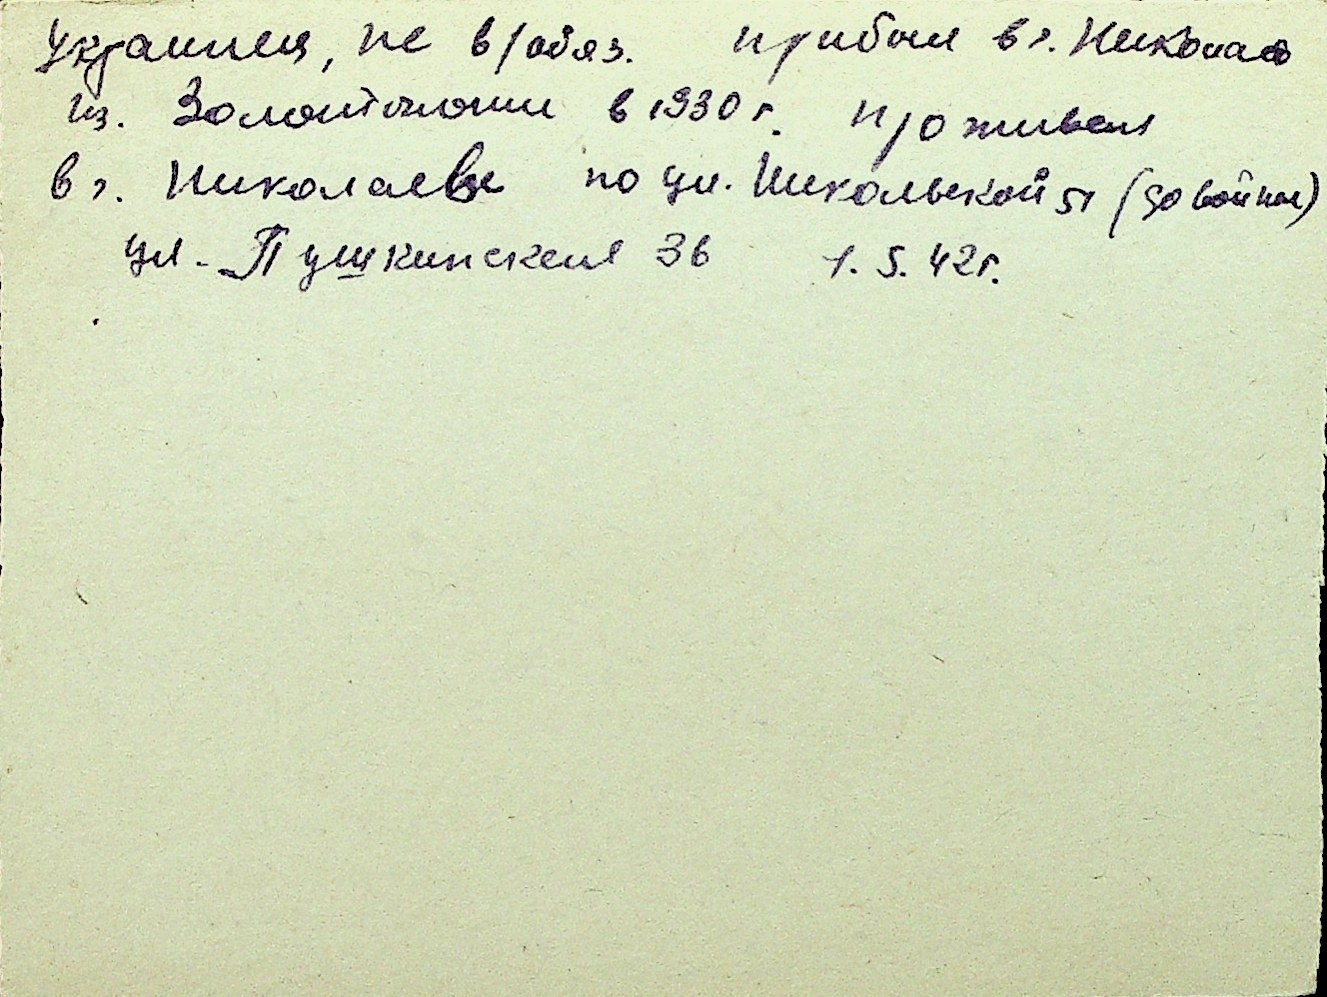 Украинец, не в/обяз. прибыл в г. Николаев
из. Золотоноши в 1930 г. проживал
в г. Николаеве по ул. Никольской 51 (до войны)
ул. Пушкинская 36 1.5.42г.